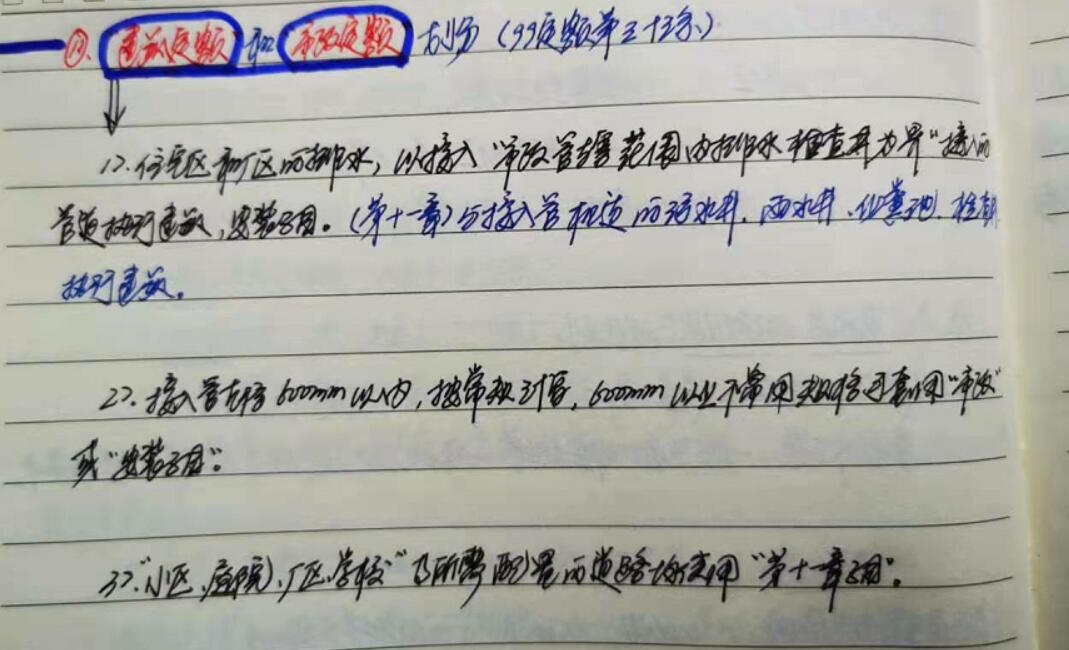 ⑩. 建筑定额 和 市政定额 划分 (99定额第三十三条)
1>. 住宅区和厂区的排水, 以接入"市政管辖范围内排水检查井为界"接入的
管道执行建筑, 安装子目。(第十一章) 与接入管相连的污水井. 雨水井. 化粪池. 检
执行建筑。
2>. 接入管在 600mm以内, 按常规计算, 600mm以上不常用规格可套用"市政"
或"安装子目"。
3>. "小区, 庭院, 厂区, 学校" 配置的道路 套用 "第十一章子目"。